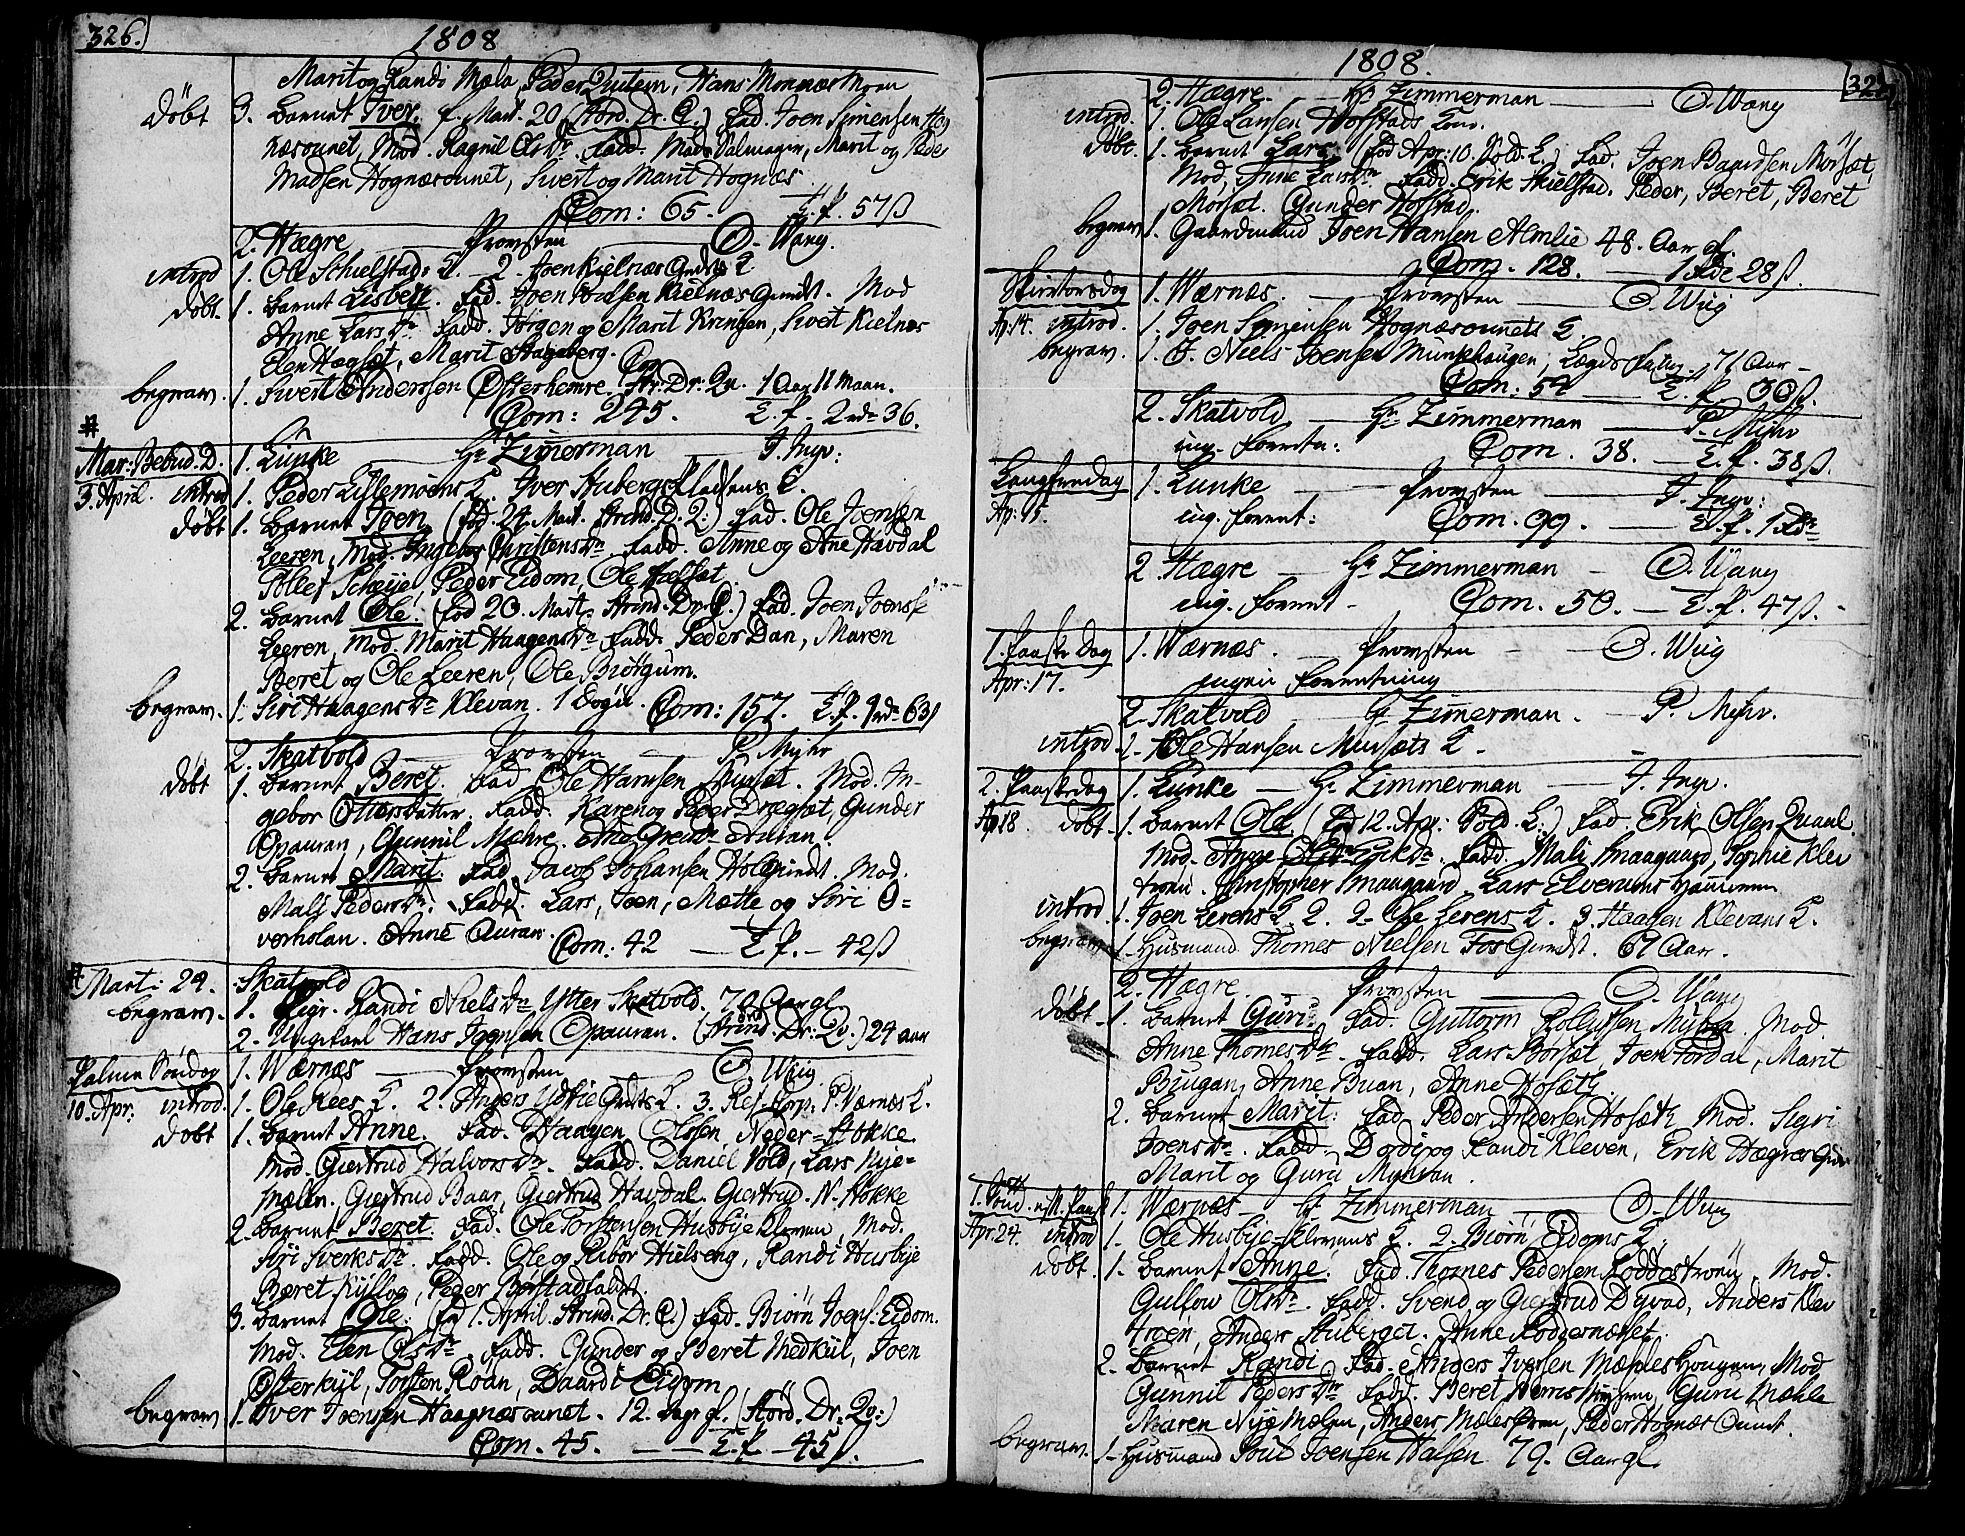 326.
1808
Marit og Randi Mæla, Peder Quitem, Hans Monnæs Moan
Döbt 3. Barnet Iver f. Mart. 20 (Stord. Dr. C.) Fad. Joen Simensen Hog
næsounet, Mod. Ragnil Olsdr. Fadd. Mads Valmagen, Marit og Peder
Madsen Hognæsounet, Sivert og Marit Hognæs
Com: 65. T. f. 57 ß
2. Hægre Provsten O. Wang.
introd 1. Ole Schielstads K. 2. Joen Kielnæs Gundts K
Döbt. 1. Barnet Lisbet. Fad. Joen Kielnæs Gundt. Mod
Anne Larsdr. Fadd. Jörgen og Marit Kringen, Sivert Kielnæs
Elen Hægset, Marit Hageberg.
begrav. 1. Sivert Andersen Österhemre. Str. Dr. Qv. 1 Aar 11 Maan.
Com: 245. T. f. 2 rdr 36.
Mar: Bebud. D. 1. Lunke Hr Zimmerman J. Ingv:
3. April. introd 1. Peder Lillemoens K. Iver Aubergs Pladsens K.
döbt 1. Barnet Joen (föd 24 Mart. Strind. D. 2:) Fad. Ole Joensen
Leeren, Mod. Ingebor Christensdr. Fadd. Anne og Ane Havdal
Tollef Scheye, Peder Eidom, Ole Fælset
2. Barnet Ole. (föd 20. Mart. Strind. Dr. C.) Fad. Joen Joense
Leeren, Mod. Marit Haagensdr. Fadd. Peder Dan, Maren
Beret og Ole Leeren, Ole Biörgum.
begrav. 1. Siri Haagensdr Klevan. 1 Dögn. Com: 157. T. f. 1 rdr 63 ß
2. Skatvold Provsten P. Myhr
döbt 1. Barnet Beret. Fad. Ole Hansen Muset. Mod. In-
gebor Ottersdatter. Fadd. Karen og Peder Drægset, Gunder
Opauran, Gunnil Mehre. Ane Grethe Auran.
2. Barnet Marit. Fad. Jacob Johansen Hole Gundt. Mod.
Mali Pedersdr. Fadd. Lars, Joen, Mætte og Siri O-
verholan. Anne Auran.
Com: 42 T. f. - 42 ß
Mart: 24. Skatvold
begrav. 1. Pige. Randi Nielsdr Ytter Skatvold. 70 Aar gl
2. Ungekarl Hans Joensen Opauran. (Strind. Dr: Qv.) 24 aar
Palme Söndag 1. Wærnæs Provsten O. Wiig
10. Apr. introd. 1. Ole Rees K. 2. Anders Ydstie Gundts K. 3. Res. Korp. P. Værnes K.
döbt 1. Barnet Anne. Fad. Haagen Olssen Neder-Stokke
Mod. Giertrud Halvorsdr. Fadd. Daniel Vold, Lars Nye-
mælen. Giertrud Baar, Giertrud Havdal. Giertrud. N. Stokke
2. Barnet Beret. Fad. Ole Torstensen Husbye Elvran, Mod.
Siri Sverksdr. Fadd. Ole og Ribor Hielseng, Randi Husbye
Beret Kyllog, Peder Börstadfaldet.
3. Barnet Ole: (föd 1. April. Strind. Dr. C) Fad. Biörn Joens: Eidom.
Mod. Elen Olsdr. Fadd. Gunder og Beret Medkiil, Joen
Österkiil, Torsten Roan, Baard Eidom
begrav 1. Iver Joensen Haagnæsounet. 12. Dage gl. (Stord. Dr: Qv:)
Com. 45. T. f. 45 ß.
1808.
2. Hægre. Hr Zimmerman O. Wang
introd. 1. Ole Larsen Hofstads Kone.
döbt. 1. Barnet Lars (föd Apr: 10. Vold. L.) Fad. Joen Baardsen Morset,
Mod, Anne Larsdr. Fadd. Erik Skielstad, Peder, Beret, Beret
Morset. Gunder Hofstad.
begrav 1. Gaardmand Joen Hansen Almlie 48. Aar gl.
Com. 128. 1 Rdr 28 ß.
Skiertorsdag 1. Wærnæs. Provsten O. Wiig
Ap: 14. introd. 1. Joen Simensen Hognæsounets K.
begrav. 1. J. Niels Joensen Munkhaugen, Lægds Fattig. 71 Aar
Com: 57 T. f. 30 ß.
2. Skatvold Hr Zimmerman P. Myhr
ing. Forretn: Com. 38. T. f. 38 ß.
Langfredag 1. Lunke Provsten J. Ingv:
Ap: 15. ing. Forret: Com. 99. T. f. 1 Rdr
2. Hægre Hr Zimmerman O. Wang
ing. Forret Com. 50. T. f. 47 ß.
1. Paaske Dag 1. Wærnæs. Provsten O. Wiig
Apr: 17. ingen Forretning
2. Skatvold Hr Zimmerman. P. Myhr.
introd 1. Ole Hansen Musæts K.
2. Paaskedag 1. Lunke Hr Zimmerman J. Ingv.
Ap 18. döbt 1. Barnet Ole. (föd 12. Apr: Vold. L:) Fad. Erik Olsen Quaal.
Mod. Anne Eriksdr. Fadd. Mali Smaagaard, Sophie Klev
troen. Christopher Smaagaard, Lars Elverums Hammeren
introd 1. Joen Lerens K. 2. Ole Lerens K. 3. Haagen Klevans K.
begrav. 1. Husmand Thomes Nielsen Fos Gundt. 67 Aar.
2. Hægre Provsten O. Wang
döbt. 1. Barnet Guri. Fad. Guttorm Rollufsen Myhra. Mod
Anne Thomesdr. Fadd. Lars Börset, Joen Fordal, Marit
Biugan, Anne Buan, Anne Hofæth
2. Barnet Marit: Fad. Peder Andersen Hofæth Mod. Sigri
Joensdr. Fadd. Dordi og Randi Kleven, Erik Hægres Gun
Marit og Guru Myhran.
1. Sönd. e. Paask 1. Wærnæs Hr Zimmerman O. Wiig
Apr: 24. introd 1. Ole Husbye-Elvrans K. 2. Biørn Eidoms K.
döbt. 1. Barnet Anne. Fad. Thomes Pedersen Roddestroen, Mod.
Gulfow Olsdr. Fadd. Svend og Giertrud Dyvad, Anders Klev
troen, Anders Auberget. Anne Rodderneset.
2. Barnet Randi Fad. Anders Iversen Mæhles Hougan, Mod
Gunnil Pedersdr. Fadd. Beret Hougan, Guru Mæhle
Maren Nyemælen, Anders Mæles Ören, Peder Hognæs Ounet.
begrav. 1. Husmand Poul Joensen Halsen 79. Aar gl.